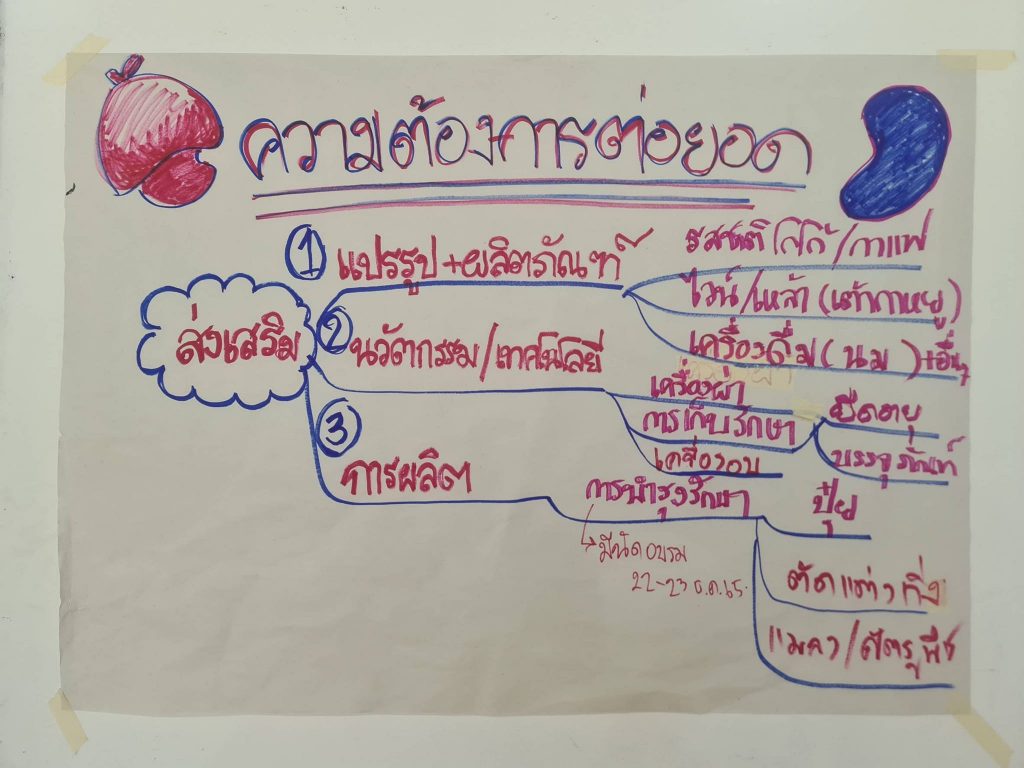 ความต้องการต่อยอด
ส่งเสริม
① แปรรูป+ผลิตภัณฑ์
รสชาติโกโก้/กาแฟ
ไวน์/เหล้า (เต้ากาหยู)
เครื่องดื่ม (นม) +อื่นๆ
② นวัตกรรม/เทคโนโลยี
เครื่องผ่า
การเก็บรักษา
ยืดอายุ
บรรจุภัณฑ์
เครื่องอบ
③ การผลิต
การบำรุงรักษา
มีนัดอบรม
22-23 ธ.ค.65
ปุ๋ย
ตัดแต่งกิ่ง
แมลง/ศัตรูพืช